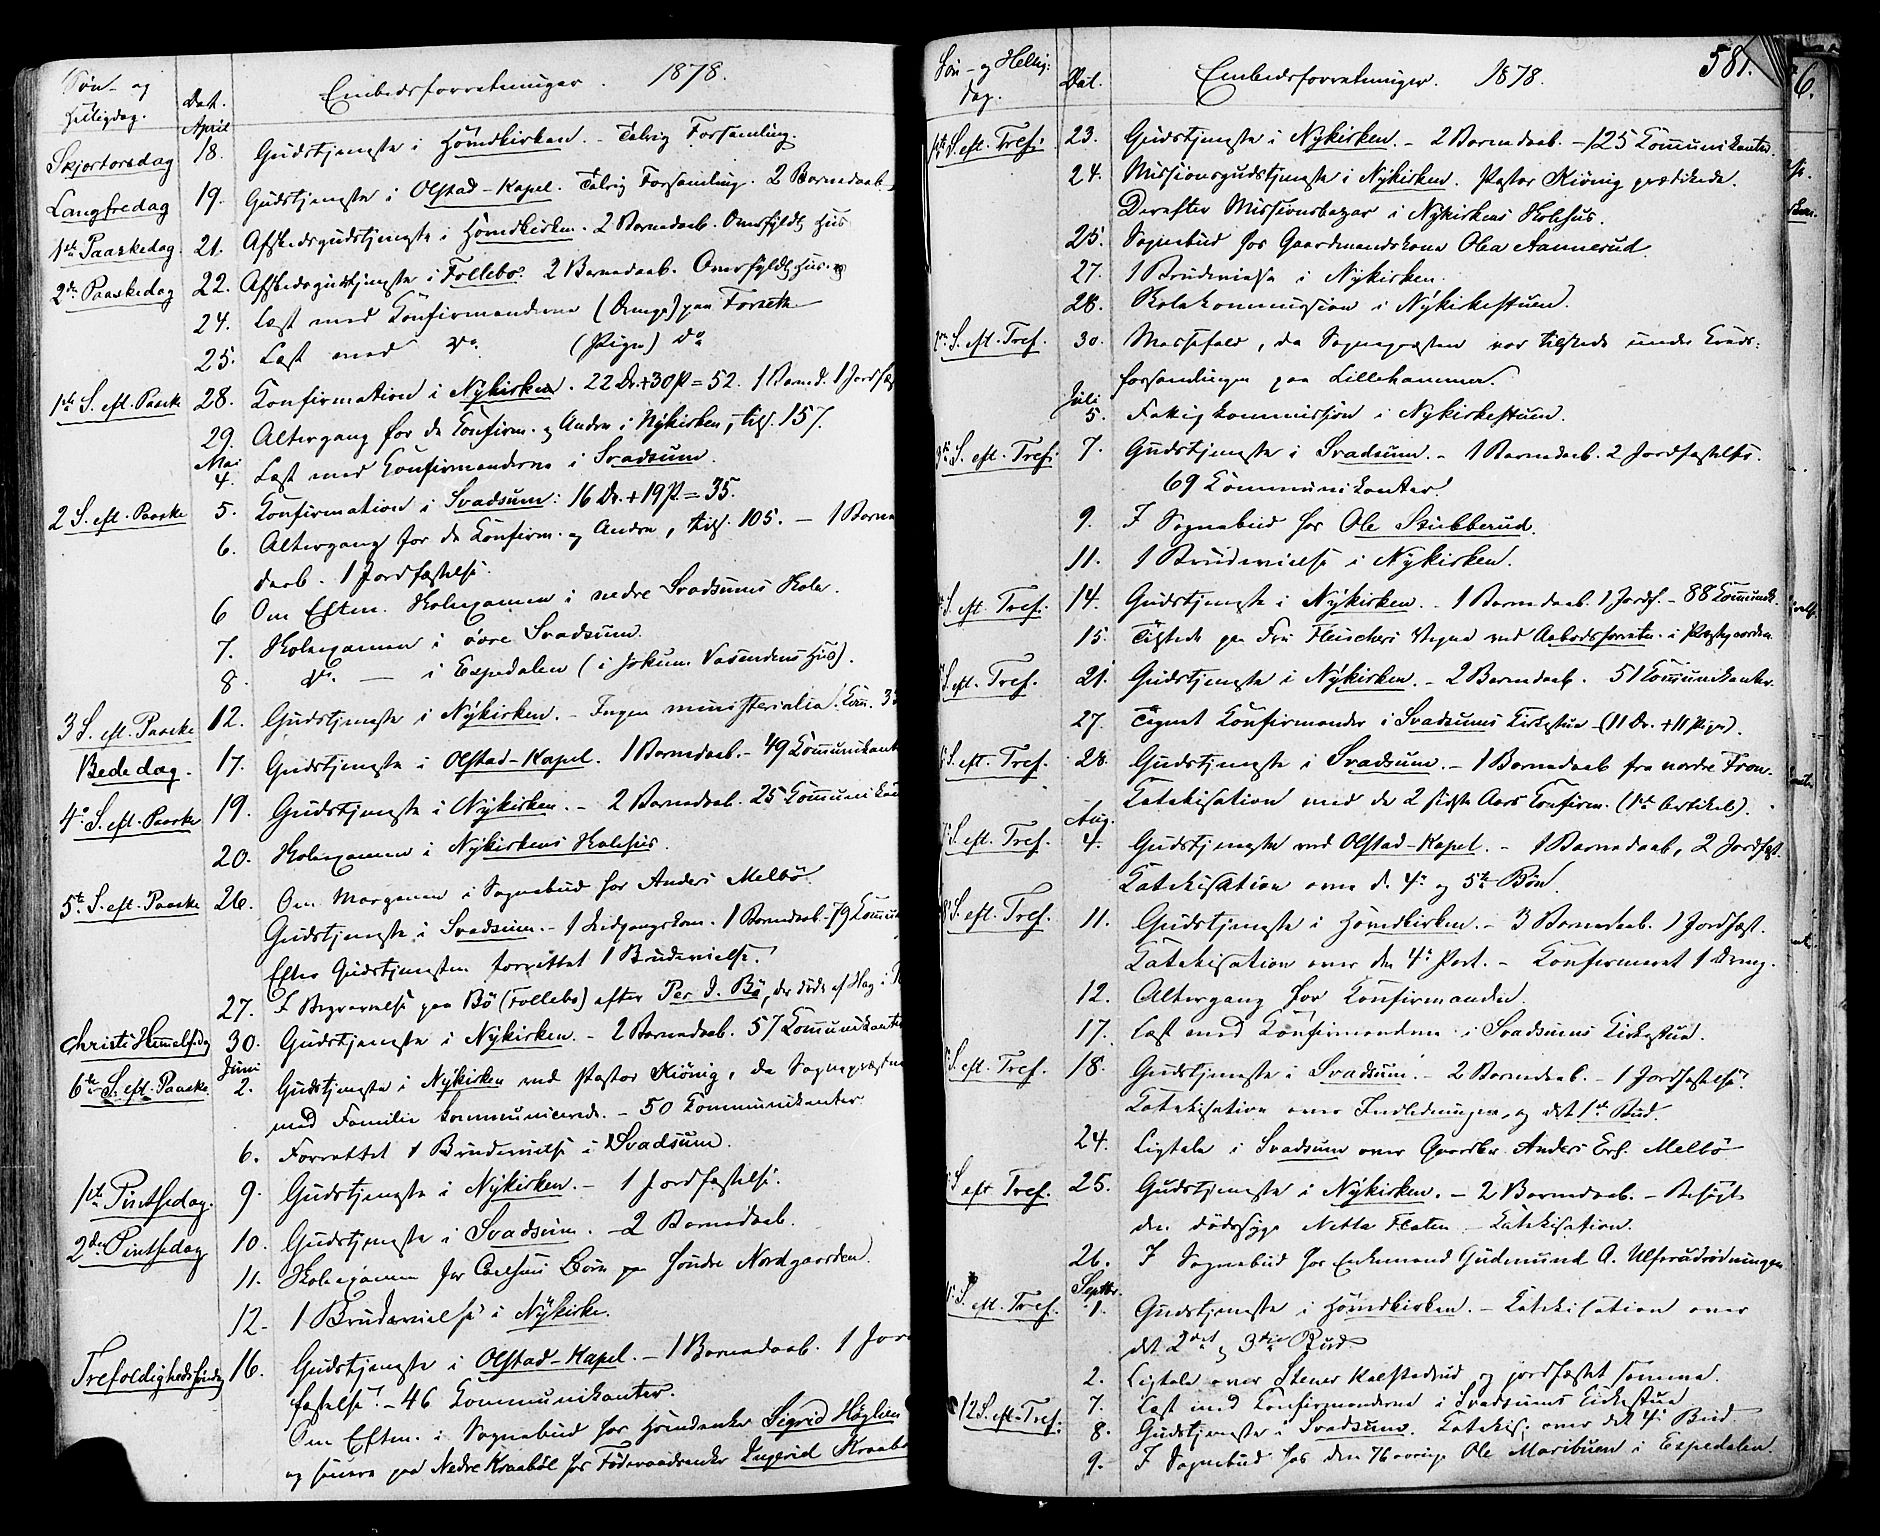 Søn- og
Helligdag.
Dat.
Embedsforretninger. 1878.
April
Skjærtorsdag 18. Gudstjeneste i Hövedkirken. - Talrig Forsamling.
Langfredag 19. Gudstjeneste i Olstad-Kapel. Talrig Forsamling. 2 Barnedaab.
1ste Paaskedag 21. Afskedsgudstjeneste i Hövedkirken. 2 Barnedaab. Overfyldt Hus
2den Paaskedag 22. Afskedsgudstjeneste i Follebo. 2 Barnedaab. Overfyldt Hus.
24. Læst med Konfirmanderne (Drenge) paa Forsette
25. Læst med Do. (Piger) do
1ste S. eft. Paaske 28. Konfirmation i Nykirken. 22 Dr. + 30 P = 52. 1 Barned. 1 Jordfæst
29. Altergang for de Konfirm. og Andre i Nykirken, tils. 157.
Mai
4. Læst med Konfirmanderne i Svadsum.
2 S. eft. Paaske 5. Konfirmation i Svadsum: 16 Dr. + 19 P = 35.
6. Altergang for de Konfirm. og Andre, tils. 105. - 1 Barne
daab. 1 Jordfæstelse.
6 Om Efterm. Skolexamen i nedre Svadsums Skole.
7. Skolexamen i övre Svadsum.
8. do. — i Espedalen (i Jokum Vasendens Hus).
3 S. eft. Paaske 12. Gudstjeneste i Nykirken. - Ingen ministerialia. Kom. 33
Bededag. 17. Gudstjeneste i Olstad-Kapel. 1 Barnedaab. - 49 Kommunikant
4de S. eft. Paaske 19. Gudstjeneste i Nykirken. - 2 Barnedaab. 25 Kommunikan
20. Skolexamen i Nykirkens Skolehus.
5te S. eft. Paaske 26. Om Morgenen i Sognebud hos Anders Melbö.
Gudstjeneste i Svadsum. - 1 Kirkgangskone. 1 Barnedaab. 79 Kommu
Efter Gudstjenesten forrettet 1 Brudevielse.
27. I Begravelse paa Bö (Follebo) efter Per J. Bö, der döde af Slag i
Christi Himmelfdag 30. Gudstjeneste i Nykirken. - 2 Barnedaab. 57 Kommunikanter
Juni
6te S. eft. Paaske. 2. Gudstjeneste i Nykirken ved Pastor Kiönig, da Sognepræsten
med Familie kommunicerede. - 50 Kommunikanter
6. Forrettet 1 Brudevielse i Svadsum.
1ste Pintsedag. 9. Gudstjeneste i Nykirken. - 1 Jordfæstelse.
2den Pintsedag 10. Gudstjeneste i Svadsum. - 2 Barnedaab.
11. Skolexamen for Carlsens Börn paa Söndre Nordgaarden.
12. 1 Brudevielse i Nykirke.
Trefoldighedssöndag 16. Gudstjeneste i Olstad-Kapel. - 1 Barnedaab. 1 Jord
fæstelse. - 46 Kommunikanter.
Om Efterm. i Sognebud hos Sigrid Höglien
og senere paa Nedre Kraaböl hos Föderaadsenke Ingrid Kraabö
Søn- og Hellig-
dag.
Dat.
Embedsforretninger. 1878.
581.
6.
1ste S. eft. Tref: 23. Gudstjeneste i Nykirken. - 2 Barnedaab. - 125 Kommunikanter.
24. Missionsgudstjeneste i Nykirken. Pastor Kiönig prædikede.
Derefter Missionsbazar i Nykirkens Skolehus.
25. Sognebud hos Gaardmandskone Olea Aannerud.
27. 1 Brudevielse i Nykirken.
28. Skolekommission i Nykirkestuen.
2den S. eft. Tref. 30. Messefald, da Sognepræsten var tilstede under Kreds-
forsamlingen paa Lillehammer.
Juli
5. Fattigkommission i Nykirkestuen.
3die S. eft. Tref: 7. Gudstjeneste i Svadsum. - 1 Barnedaab. 2 Jordfæstelser.
69 Kommunikanter.
9. I Sognebud hos Ole Skubberud.
11. 1 Brudevielse i Nykirken.
S. eft. Tref. 14. Gudstjeneste i Nykirken. - 1 Barnedaab. 1 Jordf. - 88 Kommunik.
15. Tilstede paa Fru Fleischers Vegne ved Aabodsforretn. i Præstegaarden.
S. eft. Tref. 21. Gudstjeneste i Nykirken. - 2 Barnedaab. 51 Kommunikanter.
27. Tegnet Konfirmander i Svadsums Kirkestue - (11 Dr. + 11 Piger).
S. eft. Tref. 28. Gudstjeneste i Svadsum. - 1 Barnedaab fra nordre Fron.
Katekisation med de 2 sidste Aars Konfirm. (1ste Artikel).
Aug.
S. eft. Tref. 4. Gudstjeneste ved Olstad-Kapel. - 1 Barnedaab, 2 Jordfæst.
Katekisation over d. 4de og 5te Bön.
8de S. eft. Tref. 11. Gudstjeneste i Hövedkirken. - 3 Barnedaab. 1 Jordfæst.
Katekisation over den 4de Part. - Konfirmeret 1 Dreng.
12. Altergang for Konfirmanden.
17. Læst med Konfirmanderne i Svadsums Kirkestue.
S. eft. Tref. 18. Gudstjeneste i Svadsum. - 2 Barnedaab. - 1 Jordfæstelse.
Katekisation over Indledningen, og det 1ste Bud.
24. Ligtale i Svadsum over Gaardbr. Anders Erl. Melbö
S eft Tref. 25. Gudstjeneste i Nykirken. - 2 Barnedaab. - Besögt
den dödssyge Netta Flaten. - Katekisation.
26. I Sognebud hos Enkemand Gudmund A. Ulfsrudrödningen
Septbr.
S. eft. Tref. 1. Gudstjeneste i Hövedkirken. - Katekisation over
det 2det og 3die Bud.
2. Ligtale over Stener Kalstadrud og jordfæstet samme.
7. Læst med Konfirmanderne i Svadsums Kirkestue
12 S. eft. Tref. 8. Gudstjeneste i Svadsum. Katekis: over det 4de Bud
9. I Sognebud hos den 76 aarige Ole Maribuen i Espedalen.